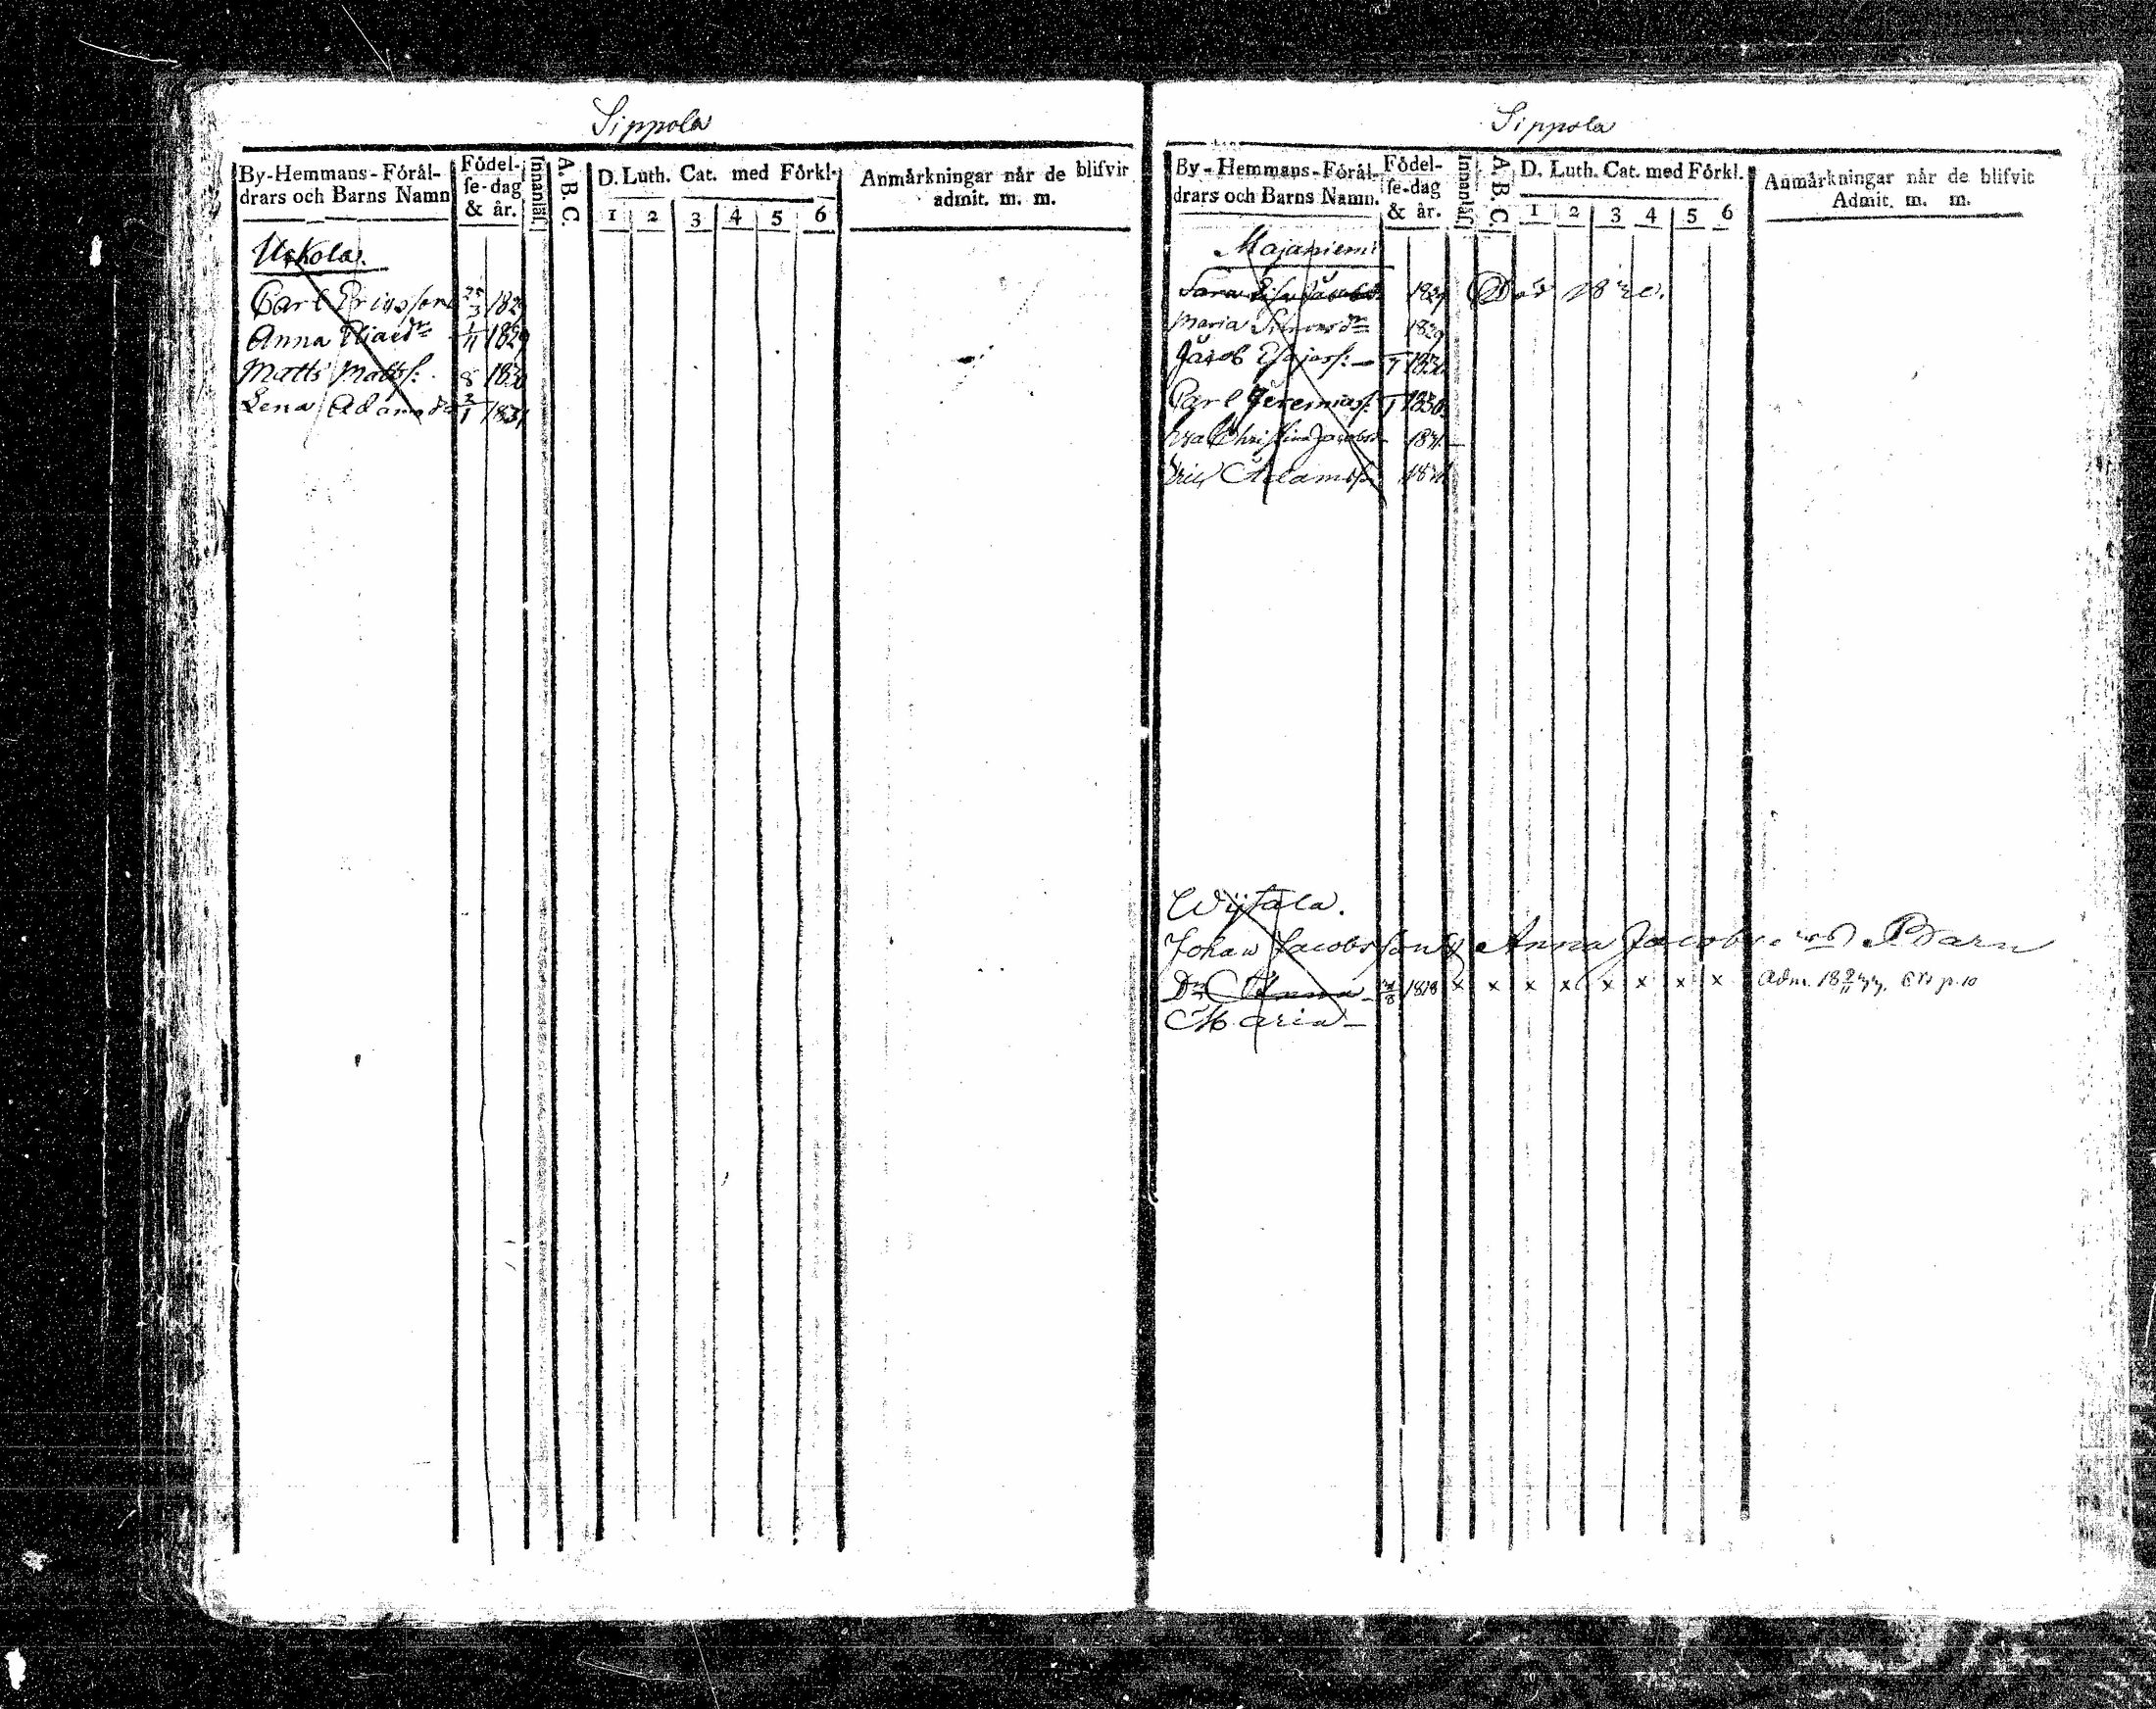 Sippola
By-Hemmans-Förål-
drars och Barns Namn
Födel-
se-dag
& år.
Innanläs.
A. B. C.
D. Luth. Cat. med Förkl.
1 2 3 4 5 6
Anmårkningar når de blifvit
admit. m. m.
Uskola.
Carl Ericsson 1829
Anna Eliaedr 1/11 1829
Matts Mattss: 8 1830
Lena Adamsd 2/1 1831
Sippola
By-Hemmans-Förål-
drars och Barns Namn.
Födel-
se-dag
& år.
Innanläs.
A. B. C.
D. Luth. Cat. med Förkl.
1 2 3 4 5 6
Anmårkningar når de blifvit
Admit. m. m.
Majaniemi
Sara 1829 Död 1830.
Maria Simonsdr 1829
Jacob Esajass:
Carl Jeremiass: 1830
Eva Christina Jacobsd 1831
Eric Adamss
Wijtala.
Johan Jacobsson & Anna Jacobs Barn
Dr Anna 1818 x x x x x x x x Adm. p. 10
Maria